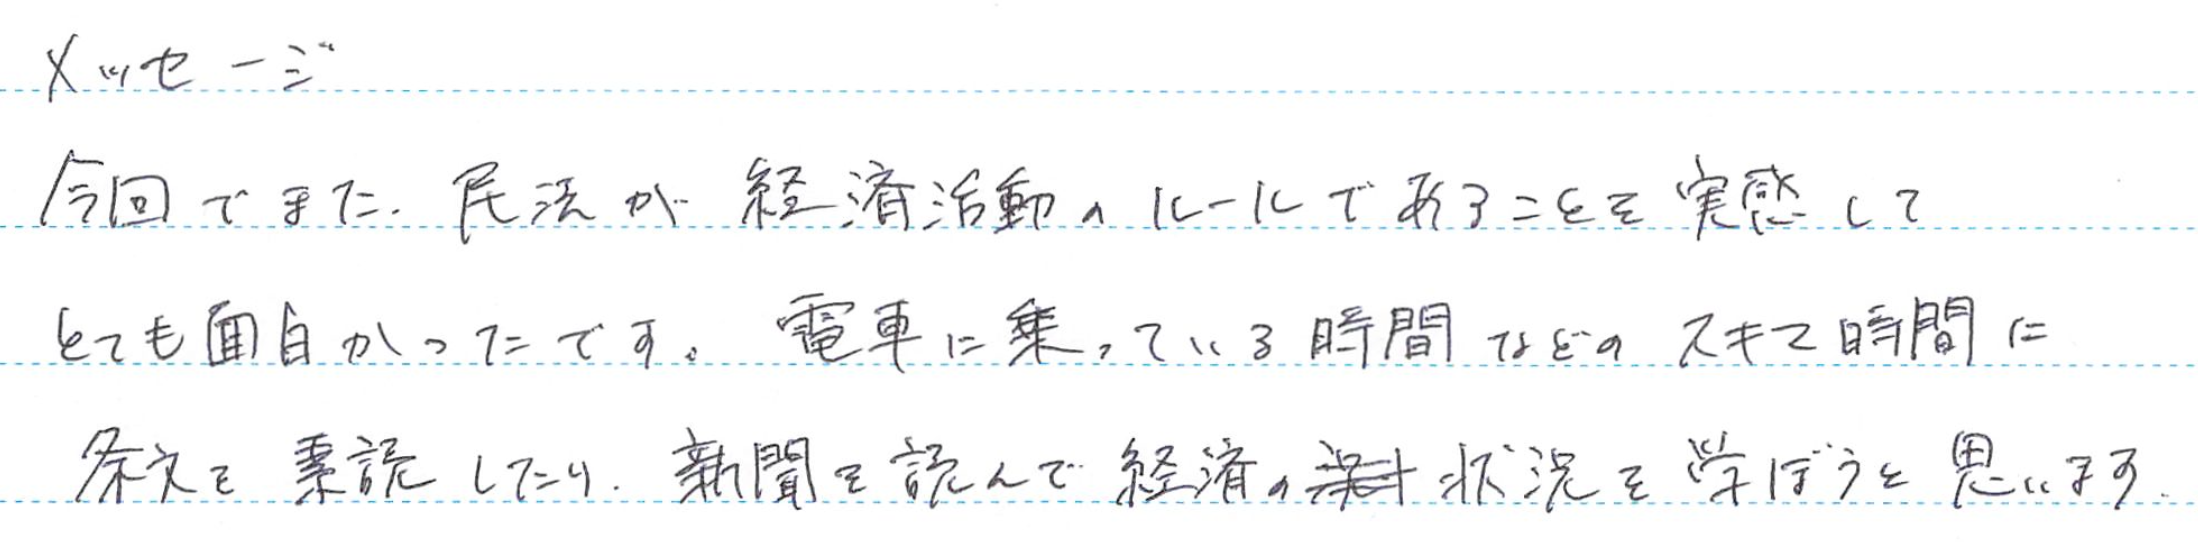 メッセージ
今回でまた、民法が経済活動のルールであることを実感して
とても面白かったです。電車に乗っている時間などのスキマ時間に
条文を素読したり、新聞を読んで経済の状況を学ぼうと思います。